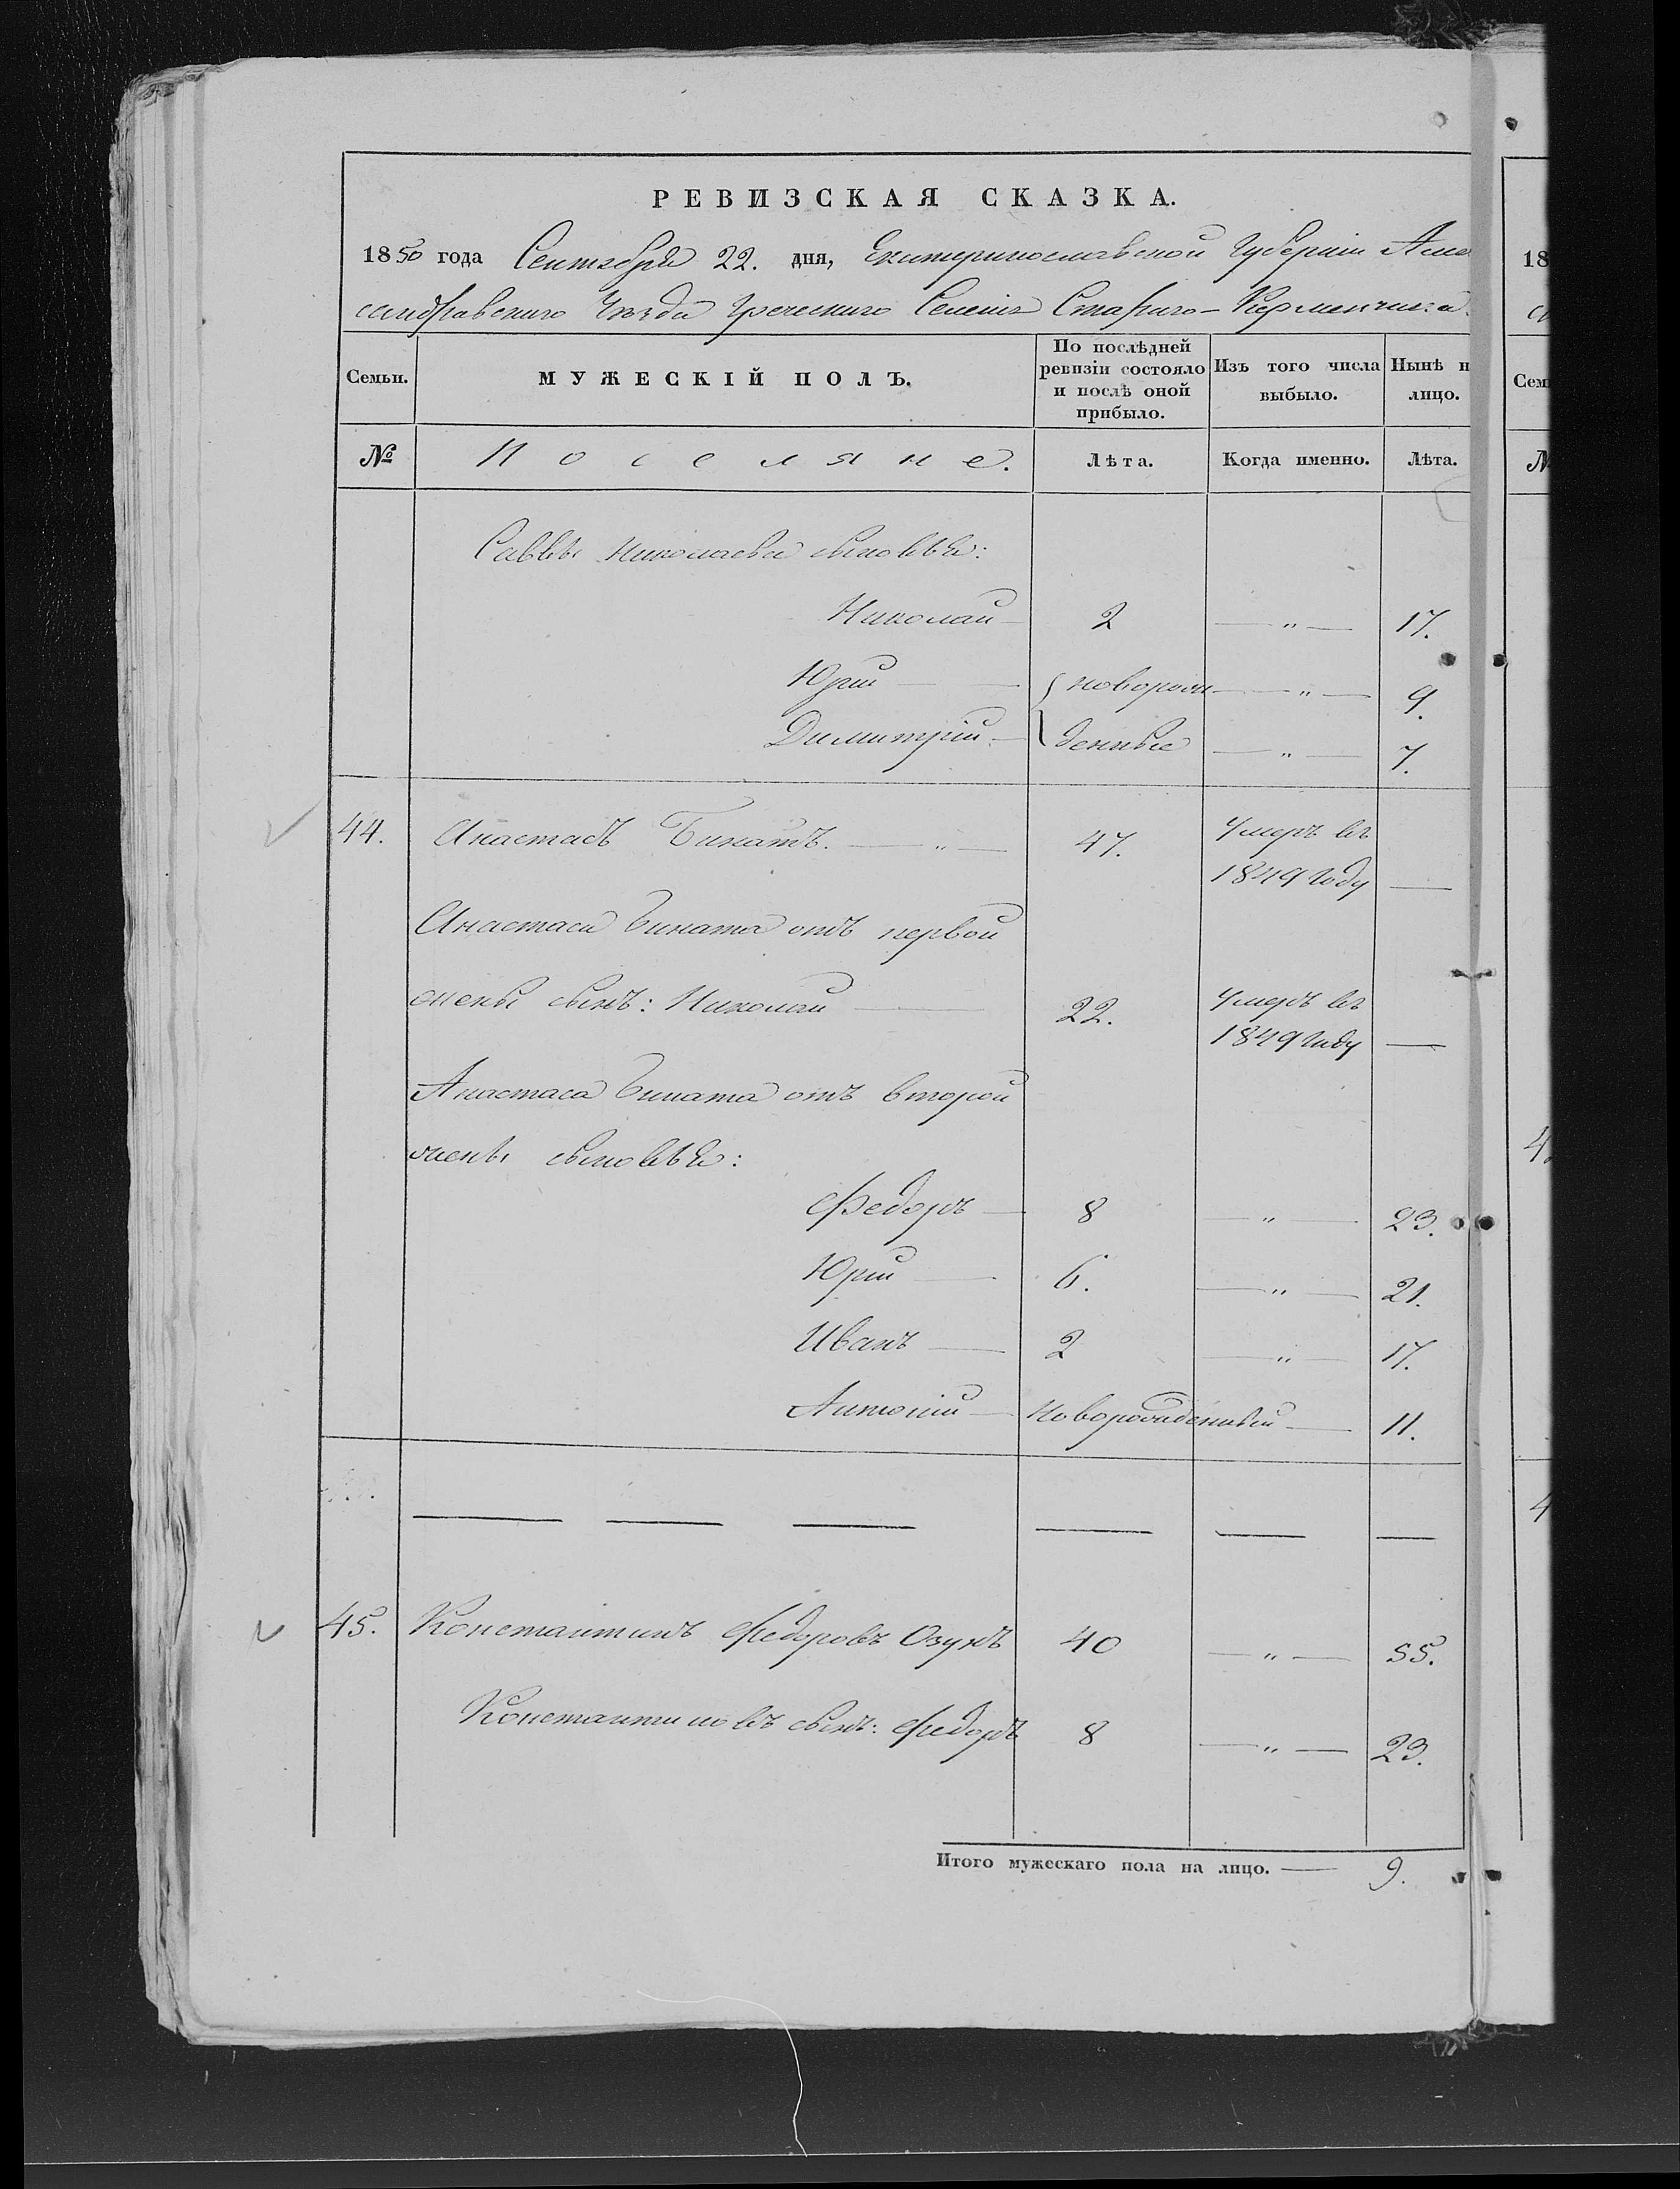 РЕВИЗСКАЯ СКАЗКА.
1850 года Сентября 22. дня, Екатеринославской Губерніи Алек
сандровскаго Уѣзда Греческаго Селенія Стараго-Керменчика.
Семьи. МУЖЕСКІЙ ПОЛЪ. По послѣдней ревизіи состояло и послѣ оной прибыло. Изъ того числа выбыло. Нынѣ н лицо.
№ Поселяне. Лѣта. Когда именно. Лѣта.
Саввы Николаева сыновья:
Николай 2 — " — 17.
Юрій — { новорож — " — 9.
Димитрій — денные — " — 7.
44. Анастасъ Бинатъ. — " — 47. Умеръ въ
1849 году —
Анастаса Бината отъ первой
жены сынъ: Николай — 22. Умеръ въ
1849 году —
Анастаса Бината отъ второй
жены сыновья:
Федоръ — 8 — " — 23.
Юрій — 6. — " — 21.
Иванъ — 2 — " — 17.
Антоній — Новорожденный — 11.
— — — — — —
45. Константинъ Федоровъ Озунъ 40 — " — 55.
Константиновъ сынъ: Федоръ 8 — " — 23.
Итого мужескаго пола на лицо. — 9.
18
Сем
№
4
4